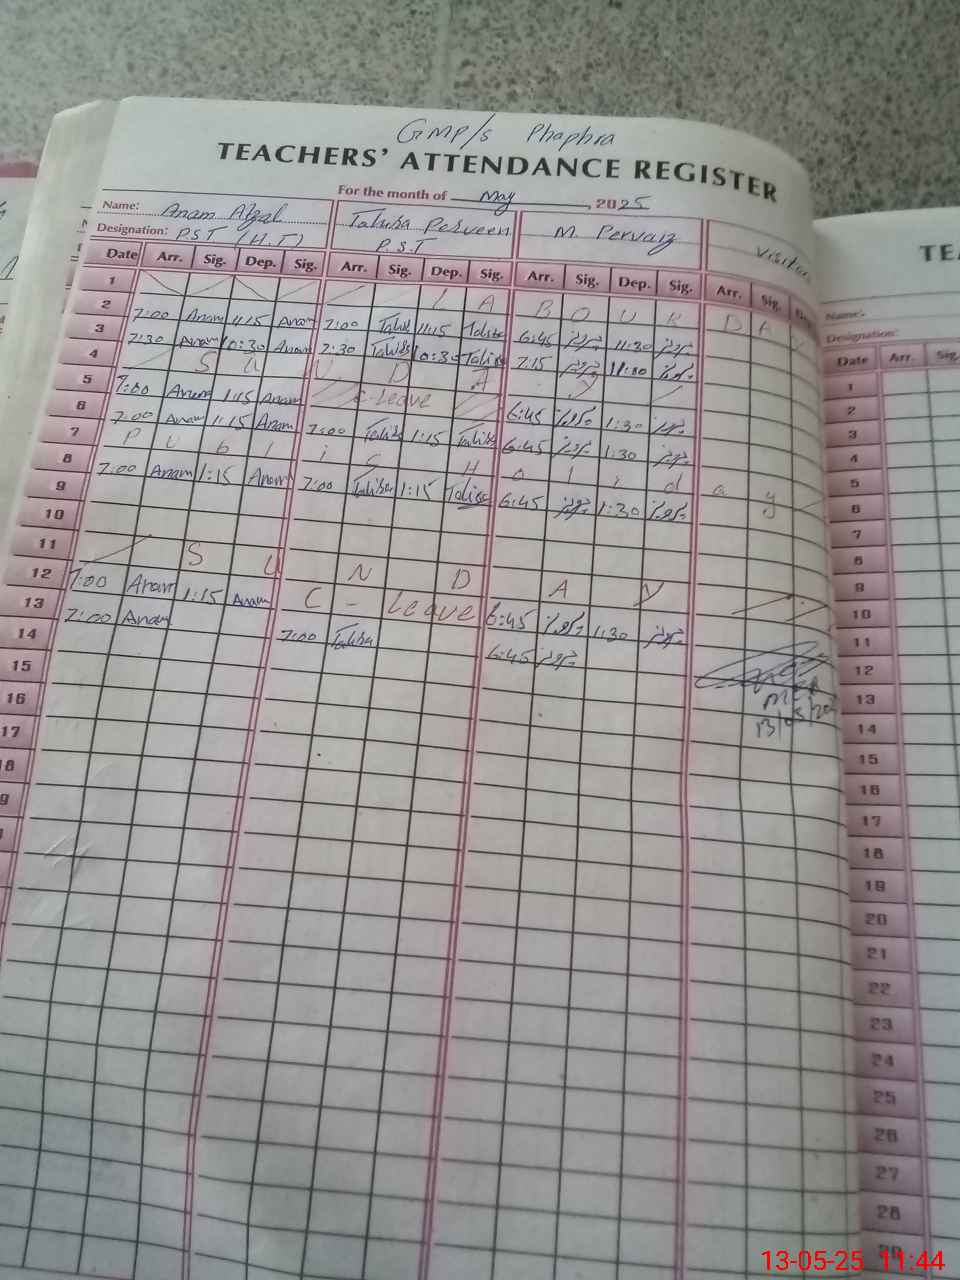 GMP/s Phaphra
TEACHERS' ATTENDANCE REGISTER
For the month of May, 2025
Name: Anam Afzal Taliba Perveen M. Pervaiz Visitor
Designation: P.S.T (H.T) P.S.T
Date Arr. Sig. Dep. Sig. Arr. Sig. Dep. Sig. Arr. Sig. Dep. Sig. Arr. Sig.
1 L A B O U R D A Y
2 7:00 Anam 11:15 Anam 7:00 Taliba 11:15 Taliba 6:45 پرویز 11:30 پرویز
3 7:30 Anam 10:30 Anam 7:30 Taliba 10:30 Taliba 7:15 پرویز 11:00 پرویز
4 S U N D A Y
5 7:00 Anam 1:15 Anam C-Leave 6:45 پرویز 1:30 پرویز
6 7:00 Anam 1:15 Anam 7:00 Taliba 1:15 Taliba 6:45 پرویز 1:30 پرویز
7 P u b l i c H o l i d a y
8 7:00 Anam 1:15 Anam 7:00 Taliba 1:15 Taliba 6:45 پرویز 1:30 پرویز
9
10
11 S U N D A Y
12 7:00 Anam 1:15 Anam C - Leave 6:45 پرویز 1:30 پرویز
13 7:00 Anam 7:00 Taliba 6:45 پرویز
14
15
16
17
18
TE
Name:
Designation:
Date Arr. Sig.
1
2
3
4
5
6
7
8
9
10
11
12
13
14
15
16
17
18
19
20
21
22
23
24
25
26
27
28
29
13-05-25 11:44